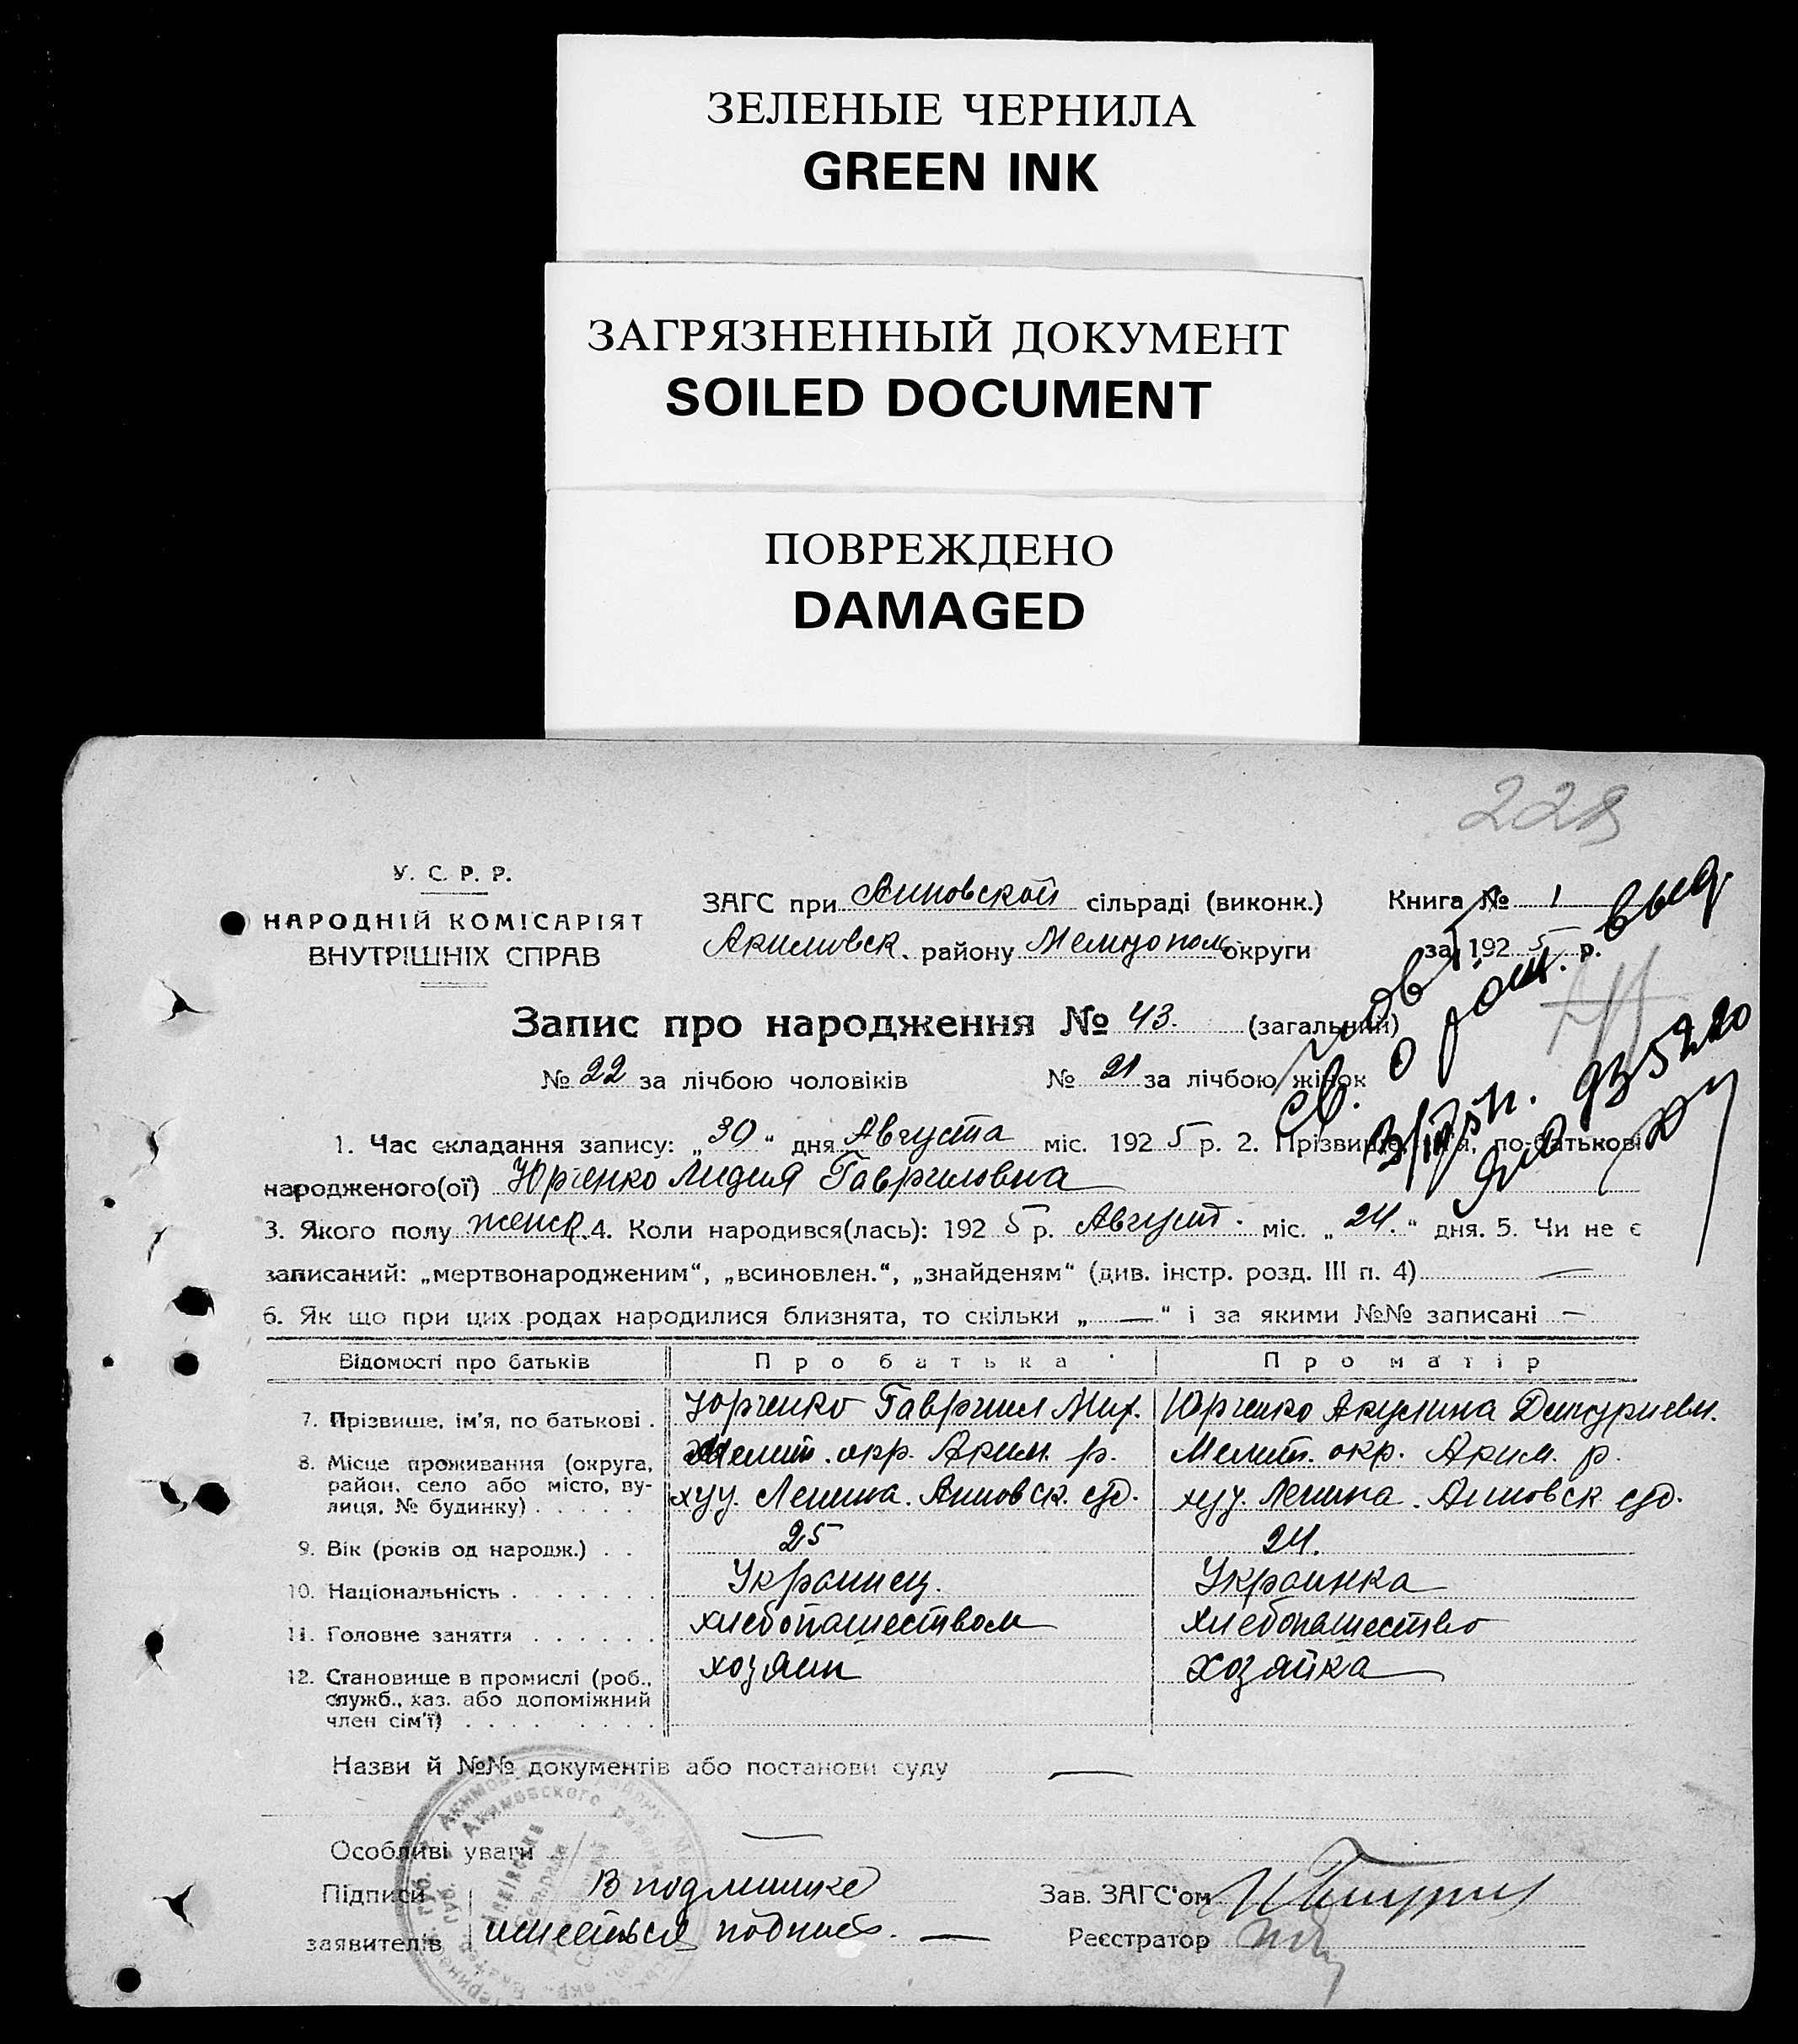 ЗЕЛЕНЫЕ ЧЕРНИЛА
GREEN INK
ЗАГРЯЗНЕННЫЙ ДОКУМЕНТ
SOILED DOCUMENT
ПОВРЕЖДЕНО
DAMAGED
228
У. С. Р. Р.
НАРОДНІЙ КОМІСАРІЯТ
ВНУТРІШНІХ СПРАВ
ЗАГС при Анновской сільраді (виконк.)
Акимовск. району Мелитопол округи
Книга № 1
за 1925 р.
Запис про народження № 43. (загальний)
№ 22 за лічбою чоловіків № 21 за лічбою жінок
св. о рожд. выд.
1. Час складання запису: „30“ дня Августа міс. 1925 р. 2. Прізвище, ім'я, по-батькові
народженого(ої) Юрченко Лидия Гавриловна
3. Якого полу женск. 4. Коли народився(лась): 1925 р. Август. міс. „24.“ дня. 5. Чи не є
записаний: „мертвонародженим“, „всиновлен.“, „знайденям“ (див. інстр. розд. III п. 4) —
6. Як що при цих родах народилися близнята, то скільки „—“ і за якими №№ записані —
Відомості про батьків Про батька Про матір
7. Прізвище, ім'я, по батькові . Юрченко Гавриил Мих. Юрченко Акулина Дмитриевн.
8. Місце проживання (округа, район, село або місто, вулиця, № будинку) . . . . .
Мелит. окр. Аким. р. Мелит. окр. Аким. р.
хут. Ленина. Анновск. с/с. хут. Ленина. Анновск с/с.
9. Вік (років од народж.) . . 25 24.
10. Національність . . . . . . . Украинец. Украинка
11. Головне заняття . . . . . . хлебопашеством хлебопашество
12. Становище в промислі (роб., хозяин хозяйка
служб., хаз. або допоміжний
член сім'ї) . . . . . . . . .
Назви й №№ документів або постанови суду —
Особливі уваги —
Підписи В подлиннике Зав. ЗАГС'ом
заявителів имееться подпись. — Реєстратор